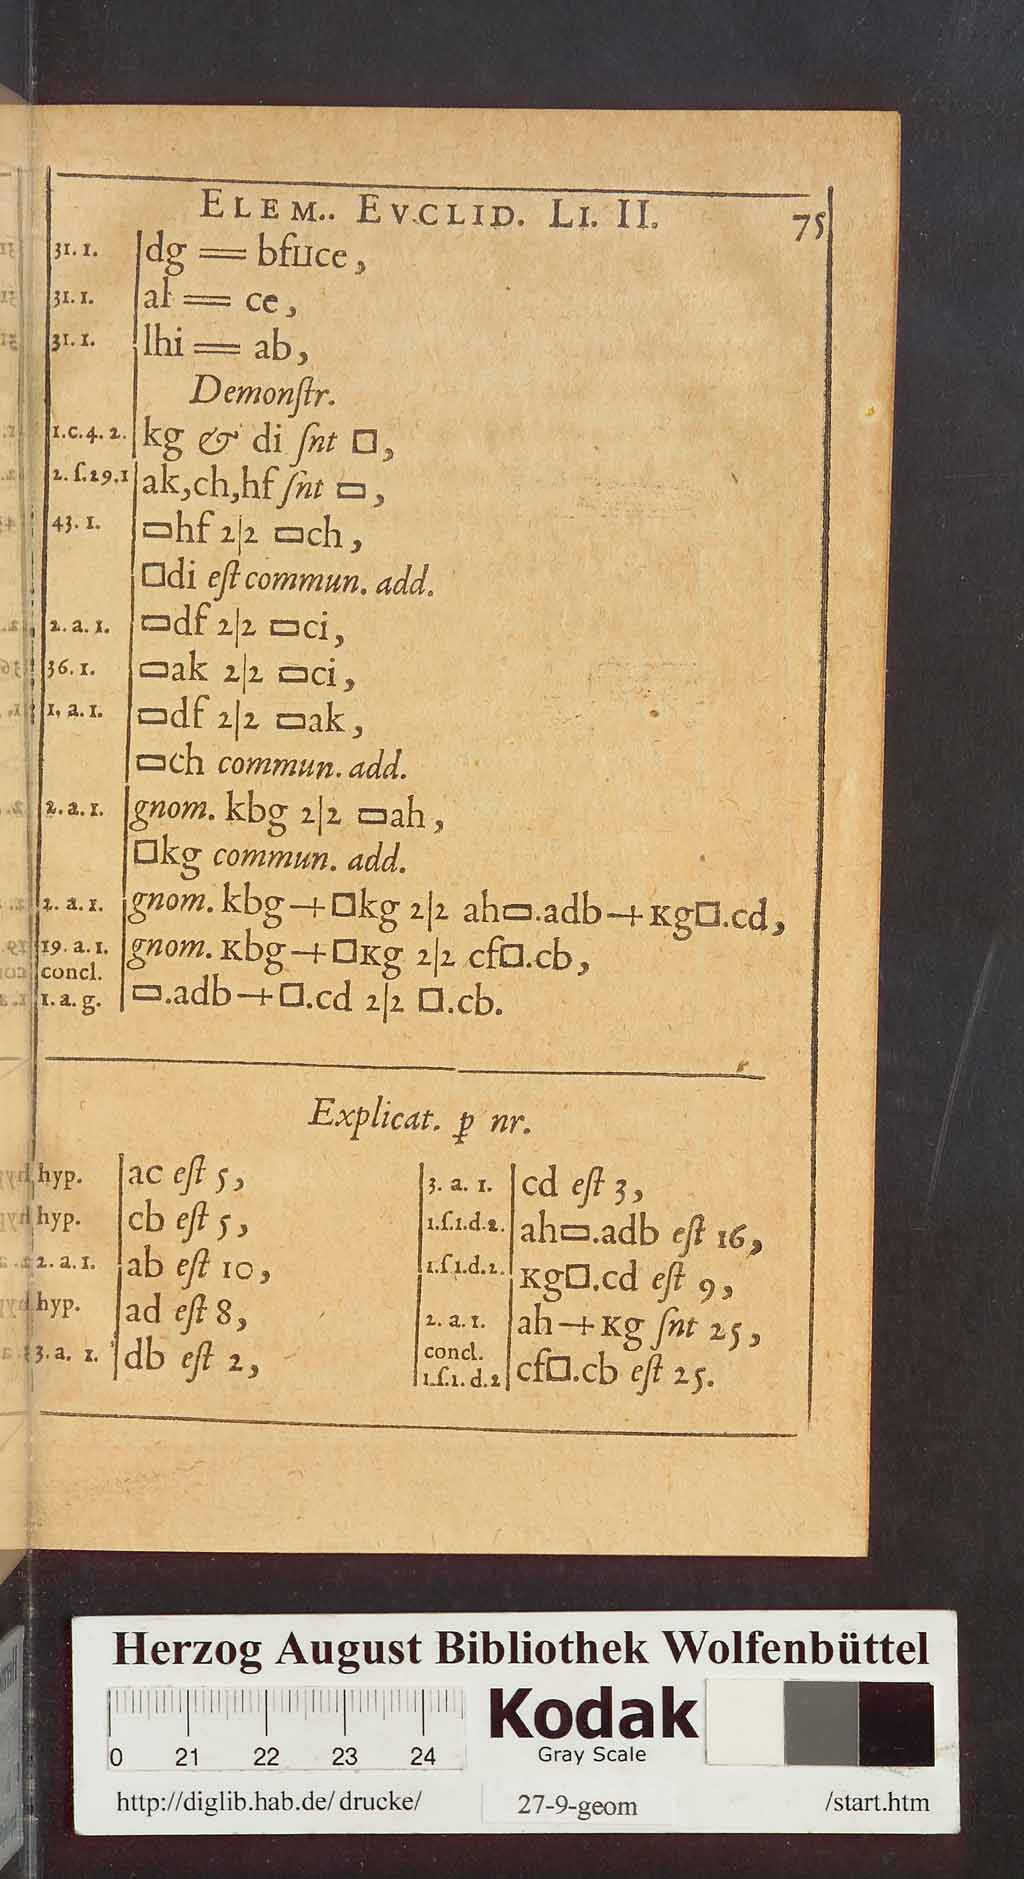 ELEM.. EVCLID. LI. II. 75
31. 1. dg = bfuce,
31. 1. al = ce,
31. 1. lhi = ab,
Demonſtr.
1.c.4. 2. kg & di ſnt □,
2. ſ.29.1 ak,ch,hf ſnt ▭,
43. 1. ▭hf 2|2 ▭ch,
□di eſt commun. add.
2. a. 1. ▭df 2|2 ▭ci,
36. 1. ▭ak 2|2 ▭ci,
1, a. 1. ▭df 2|2 ▭ak,
▭ch commun. add.
2. a. 1. gnom. kbg 2|2 ▭ah,
□kg commun. add.
2. a. 1. gnom. kbg+□kg 2|2 ah▭.adb+Kg□.cd,
19. a. 1. gnom. Kbg+□Kg 2|2 cf□.cb,
concl.
1. a. g. ▭.adb+□.cd 2|2 □.cb.
Explicat. ꝑ nr.
hyp. ac eſt 5,
hyp. cb eſt 5,
2. a. 1. ab eſt 10,
hyp. ad eſt 8,
3. a. 1. db eſt 2,
3. a. 1. cd eſt 3,
1.ſ.1.d.2. ah▭.adb eſt 16,
1.ſ 1.d.2. Kg□.cd eſt 9,
2. a. 1. ah+Kg ſnt 25,
concl.
1.ſ.1. d.2 cf□.cb eſt 25.
Herzog August Bibliothek Wolfenbüttel
Kodak
Gray Scale
0 21 22 23 24
http://diglib.hab.de/drucke/ 27-9-geom /start.htm